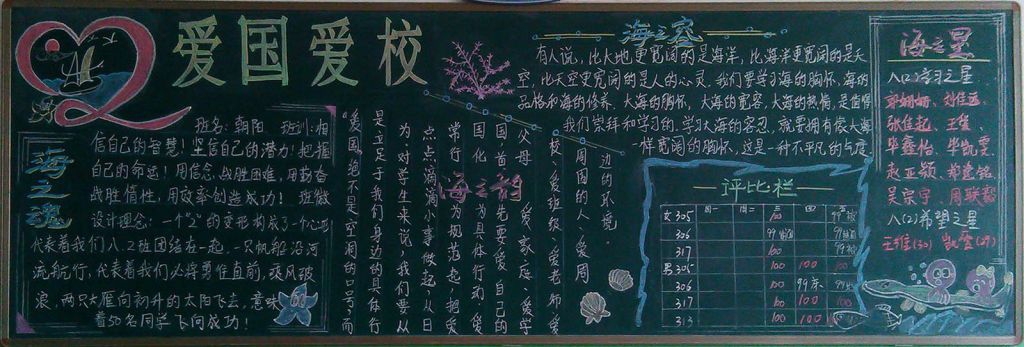 爱国爱校
海之魂
班名:朝阳 班训:相
信自己的智慧!坚信自己的潜力!把握
自己的命运!用信念,战胜困难,用勤奋
战胜惰性,用效率创造成功! 班徽
设计理念:一个"2"的变形构成了一个心形
代表着我们八.2班团结在一起,一只帆船沿河
流航行,代表着我们必将勇往直前,乘风破
浪,两只大雁向初升的太阳飞去,意味
着50名同学飞向成功!
海之韵
"爱国"绝不是空洞的口号,而
是立足于我们身边的具体行
为.对学生来说,我们要从
点点滴滴小事做起,从日
常行为规范起,把爱
国化为具体行动,爱
国,首先要爱自己的
父母、爱家庭、爱学
校、爱班级、爱老师、爱
周围的人、爱周
边的环境.
海之容
有人说,比大地更宽阔的是海洋,比海洋更宽阔的是天
空,比天空更宽阔的是人的心灵.我们要学习海的胸怀,海的
品格和海的修养.大海的胸怀,大海的宽容,大海的热情,是值得
我们崇拜和学习的,学习大海的容忍,就要拥有像大海
一样宽阔的胸怀,这是一种不平凡的气度.
评比栏
周一 周二 四
女305 100
306 99 99
317 100 99
男305 100 100 100
306 100 99 100
317 100 100 100
313 100 100 100
海之星
八(2)学习之星
张佳起、王
赵亚颖、郑
吴宗宇、周
八(2)希望之星